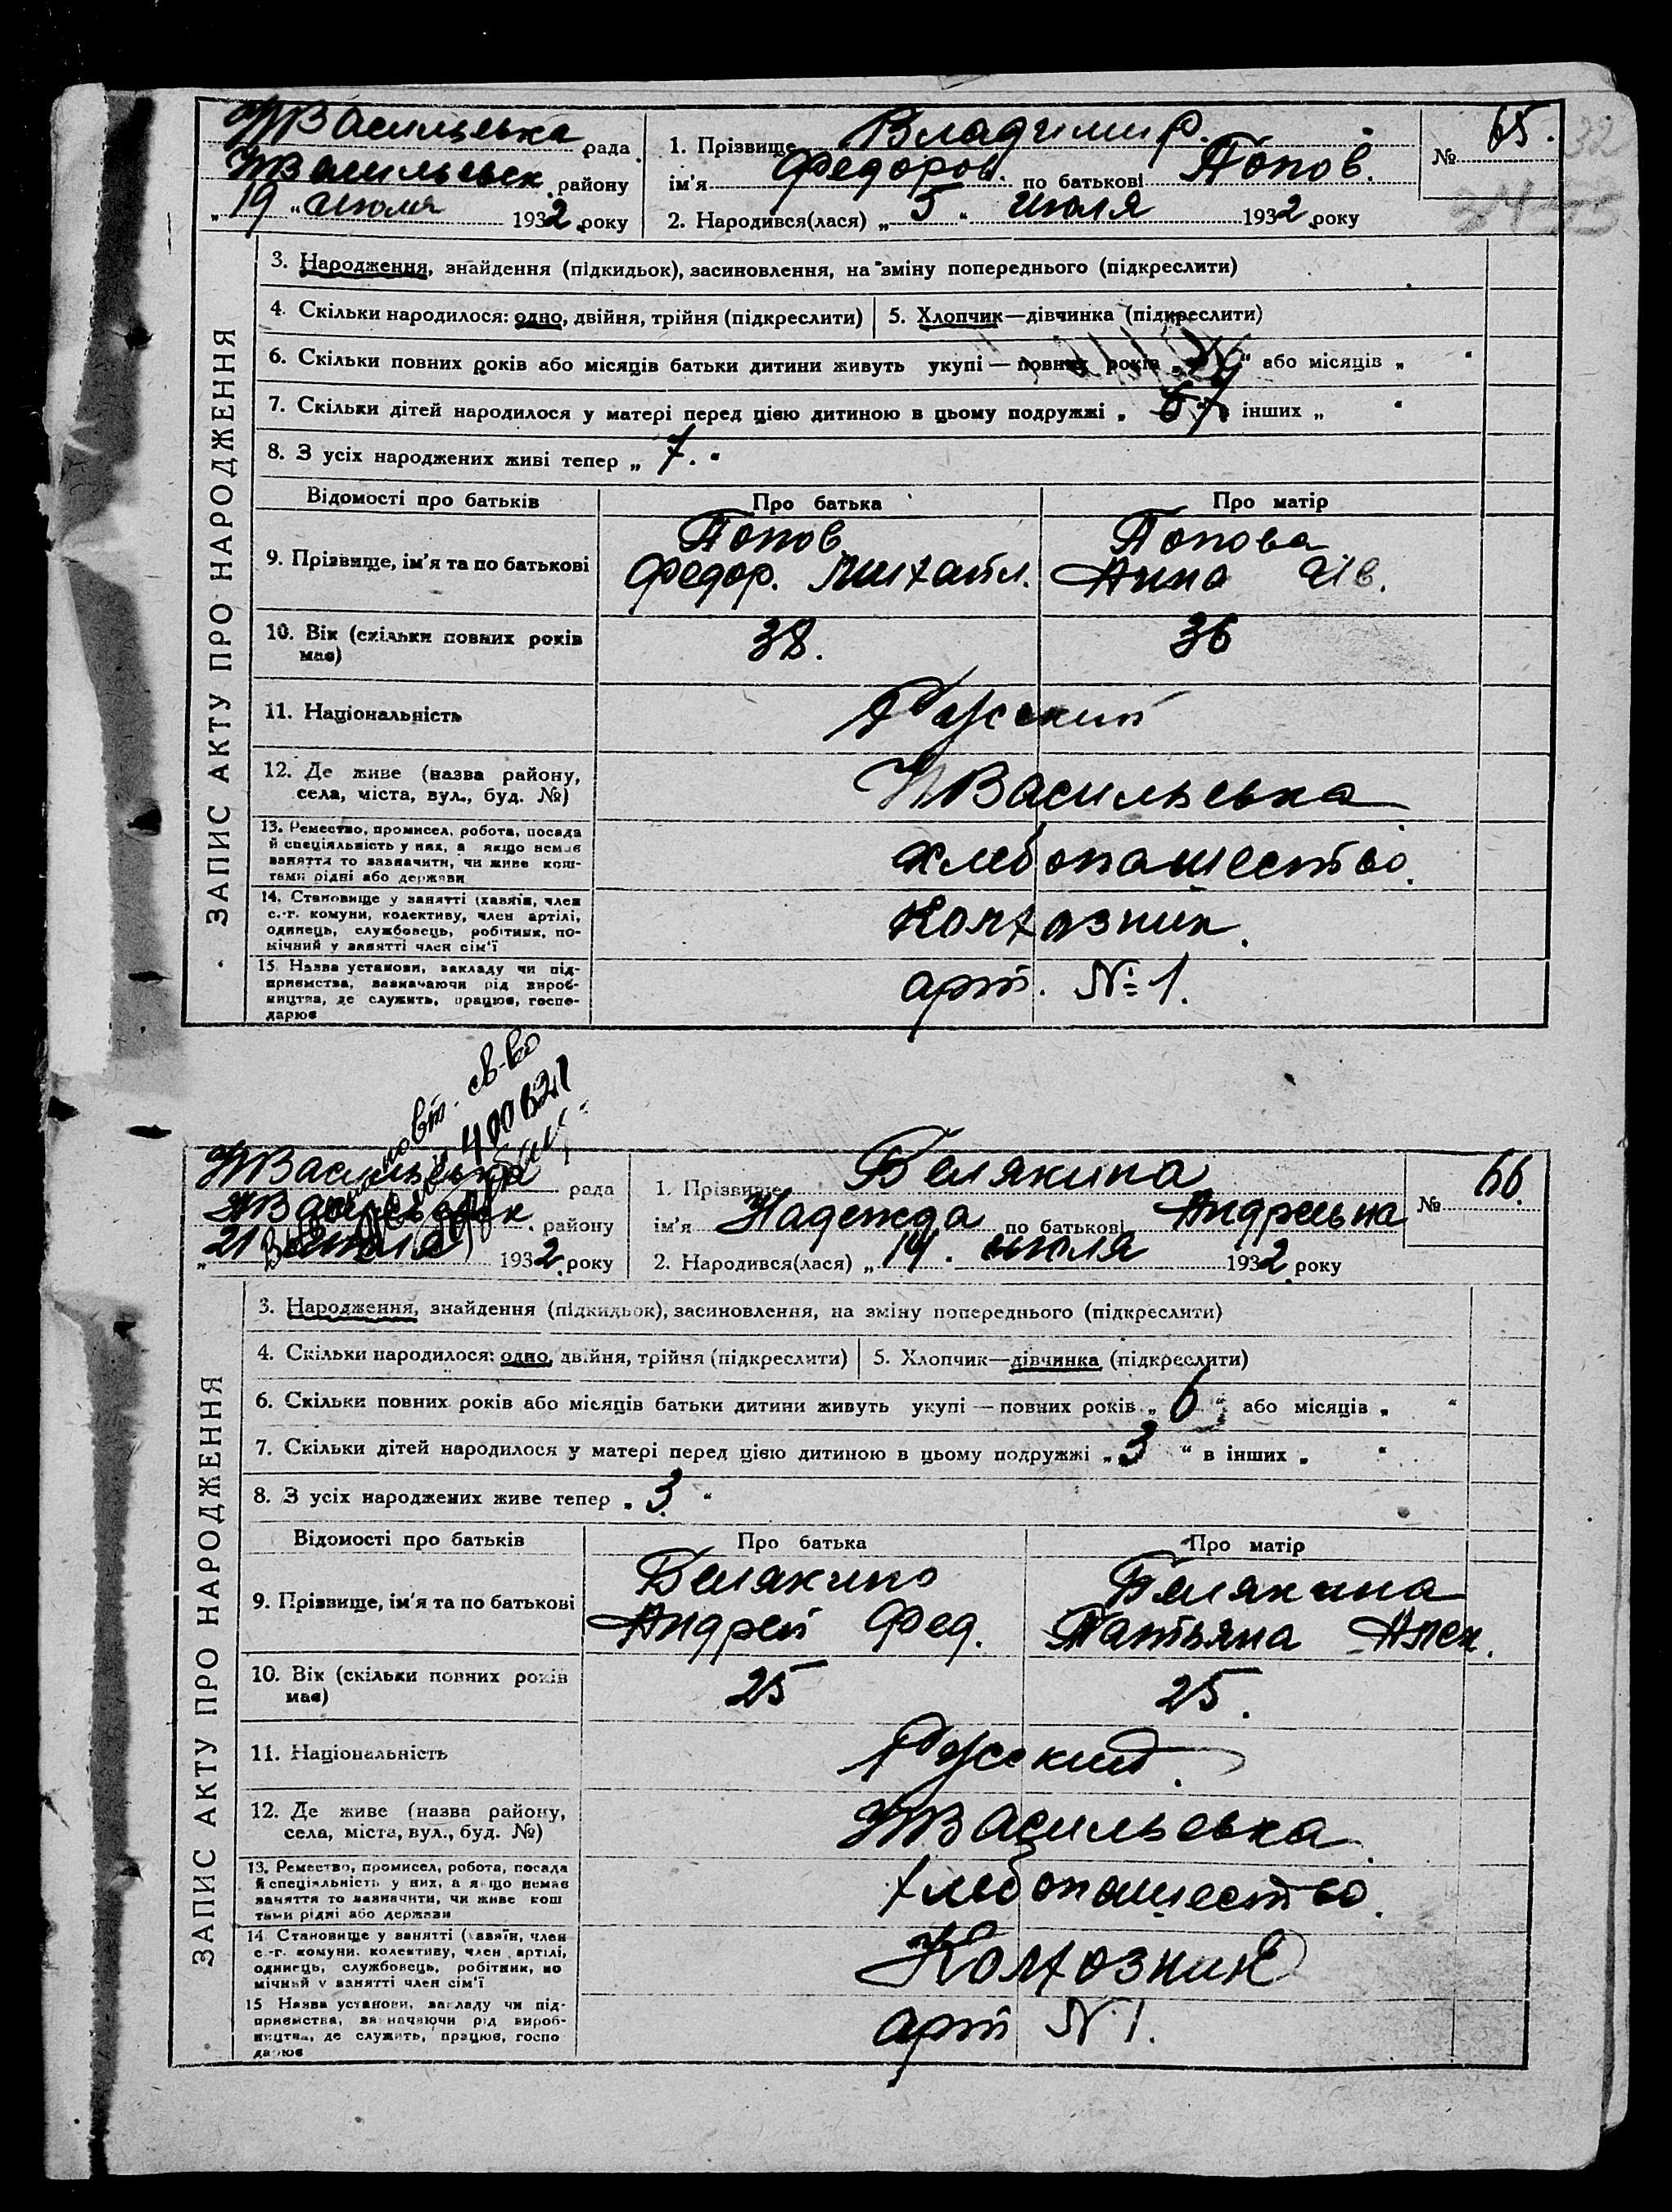 Н Васильевка рада
Н Васильевск. району
„19„ июля 1932 року
1. Прізвище Владимир.
ім'я Федоров. по батькові Попов.
2. Народився(лася) „5„ июля 1932 року
№ 65.
32
ЗАПИС АКТУ ПРО НАРОДЖЕННЯ
3. Народження, знайдення (підкидьок), засиновлення, на зміну попереднього (підкреслити)
4. Скільки народилося: одно, двійня, трійня (підкреслити)
5. Хлопчик—дівчинка (підкреслити)
6. Скільки повних років або місяців батьки дитини живуть укупі — повних років „ “ або місяців „ “
7. Скільки дітей народилося у матері перед цією дитиною в цьому подружжі „ інших „ “
8. З усіх народжених живі тепер „ 7. “
Відомості про батьків Про батька Про матір
9. Прізвище, ім'я та по батькові
Попов
Федор. Михайл.
Попова
Анна Ив.
10. Вік (скільки повних років
має)
38. 36
11. Національність Русский
12. Де живе (назва району,
села, міста, вул., буд. №)
Н Васильевка
13. Ремество, промисел, робота, посада
й спеціяльність у них, а якщо немає
заняття то зазначити, чи живе кош-
тами рідні або держави
хлебопашество.
14. Становище у занятті (хазяїн, член
с.-г. комуни, колективу, член артілі,
одинець, службовець, робітник, по-
мічний у занятті член сім'ї
Колхозник.
15. Назва установи, закладу чи під-
приємства, зазначаючи рід вироб-
ництва, де служить, працює, госпо-
дарює
арт. № 1.
повт. св-во
400621
Н Васильевка рада
Н Васильевск. району
„21 июля 1932 року
1. Прізвище Белякина
ім'я Надежда по батькові Андреевна
2. Народився(лася) „14. июля 1932 року
№ 66.
ЗАПИС АКТУ ПРО НАРОДЖЕННЯ
3. Народження, знайдення (підкидьок), засиновлення, на зміну попереднього (підкреслити)
4. Скільки народилося: одно, двійня, трійня (підкреслити)
5. Хлопчик—дівчинка (підкреслити)
6. Скільки повних років або місяців батьки дитини живуть укупі — повних років „ 6 “ або місяців „ “
7. Скільки дітей народилося у матері перед цією дитиною в цьому подружжі „ 3 “ в інших „ “
8. З усіх народжених живе тепер „ 3. “
Відомості про батьків Про батька Про матір
9. Прізвище, ім'я та по батькові
Белякин
Андрей Фед.
Белякина
Татьяна Алек.
10. Вік (скільки повних років
має)
25 25.
11. Національність Русский.
12. Де живе (назва району,
села, міста, вул., буд. №)
Н Васильевка.
13. Ремество, промисел, робота, посада
й спеціяльність у них, а якщо немає
заняття то зазначити, чи живе кош
тами рідні або держави
хлебопашество.
14. Становище у занятті (хазяїн, член
с.-г. комуни, колективу, член артілі,
одинець, службовець, робітник, по
мічний у занятті член сім'ї
Колхозник
15 Назва установи, закладу чи під-
приємства, зазначаючи рід вироб-
ництва, де служить, працює, госпо
дарює
арт N 1.